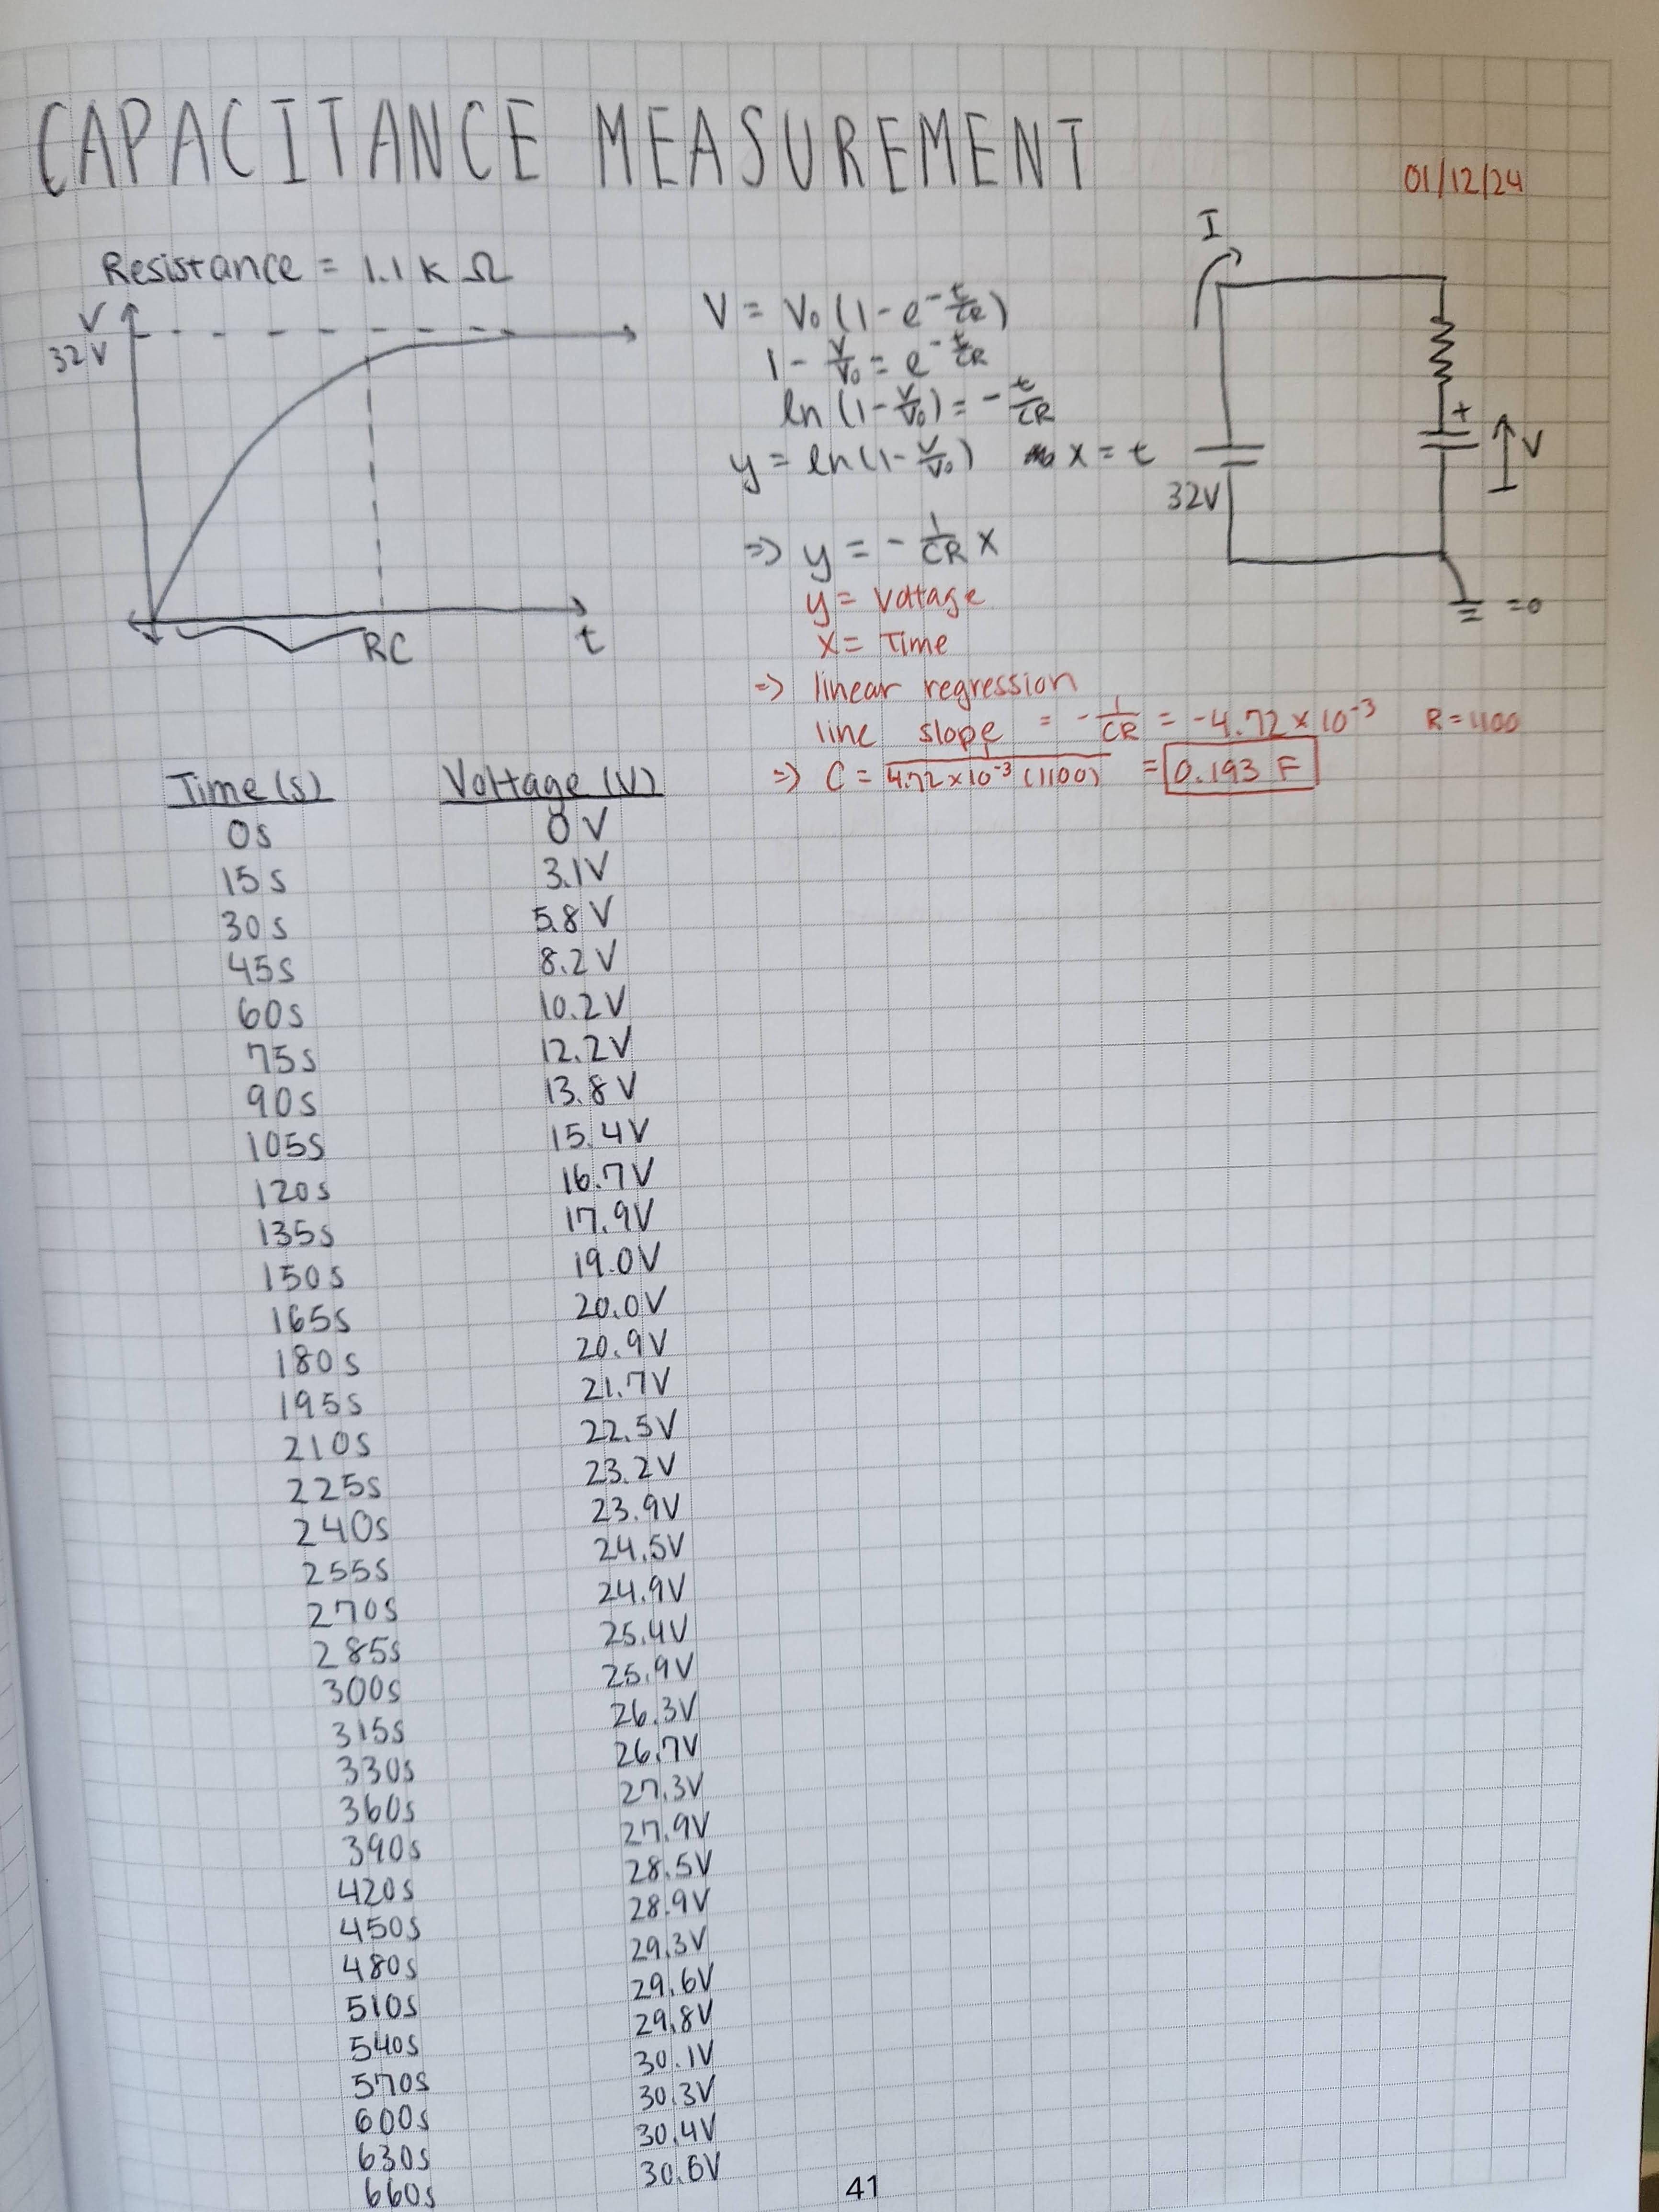 CAPACITANCE MEASUREMENT
01/12/24
Resistance = 1.1 k Ω
V
32V
RC
t
V = V₀ (1 - e^-t/CR)
1 - V/V₀ = e^-t/CR
ln (1 - V/V₀) = - t/CR
y = ln (1 - V/V₀) x = t
=> y = - 1/CR x
y = Voltage
x = Time
=> linear regression
line slope = - 1/CR = -4.72 × 10⁻³ R = 1100
=> C = 1/4.72×10⁻³ (1100) = 0.193 F
I
32V
+
V
=0
Time (s) Voltage (V)
0s 0V
15s 3.1V
30s 5.8V
45s 8.2V
60s 10.2V
75s 12.2V
90s 13.8V
105s 15.4V
120s 16.7V
135s 17.9V
150s 19.0V
165s 20.0V
180s 20.9V
195s 21.7V
210s 22.5V
225s 23.2V
240s 23.9V
255s 24.5V
270s 24.9V
285s 25.4V
300s 25.9V
315s 26.3V
330s 26.7V
360s 27.3V
390s 27.9V
420s 28.5V
450s 28.9V
480s 29.3V
510s 29.6V
540s 29.8V
570s 30.1V
600s 30.3V
630s 30.4V
660s 30.6V
41